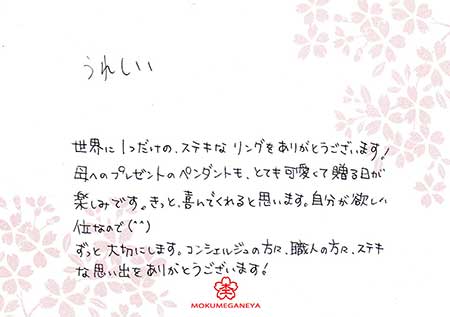 うれしい
世界に1つだけの、ステキな リングをありがとうございます!
母へのプレゼントのペンダントも、とても可愛くて贈る日が
楽しみです。きっと、喜んでくれると思います。自分が欲しい
位なので(^^)
ずっと大切にします。コンシェルジュの方々、職人の方々、ステキ
な思い出をありがとうございます!
MOKUMEGANEYA